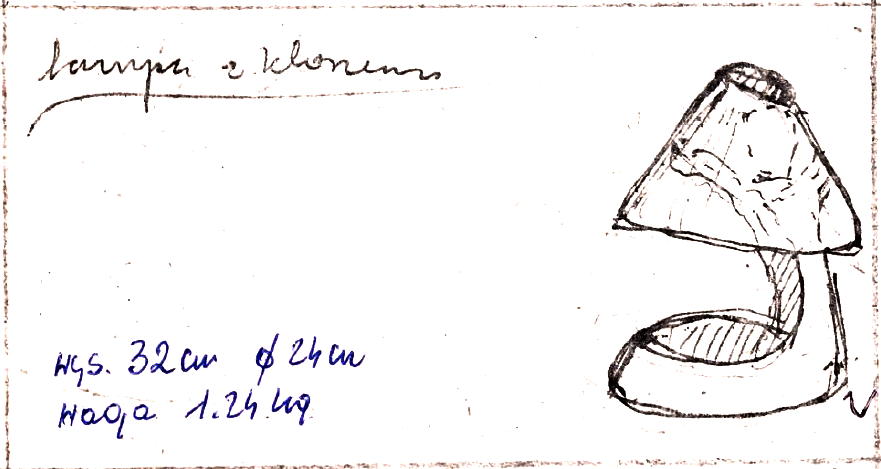 lampa z kloszem
wys. 32cm ϕ 24cm
waga 1.24 kg